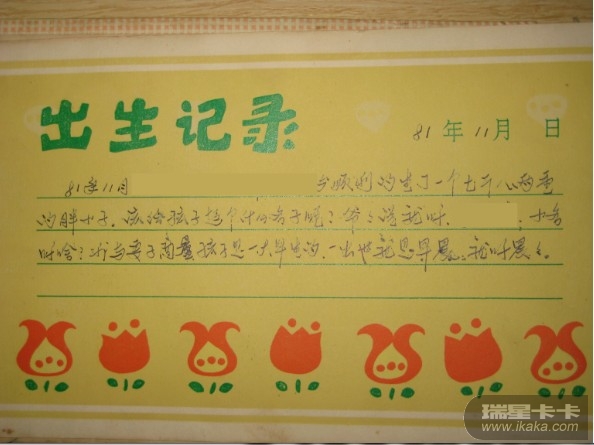 出生记录
81年11月 日
81年11月 生了一个七斤八两重
的胖小子。该给孩子起个什么名子呢?爷爷说就叫 ;小名
叫啥?我与妻子商量孩子是一大早生的,一出世就是早晨,就叫晨晨。
瑞星卡卡
www.ikaka.com